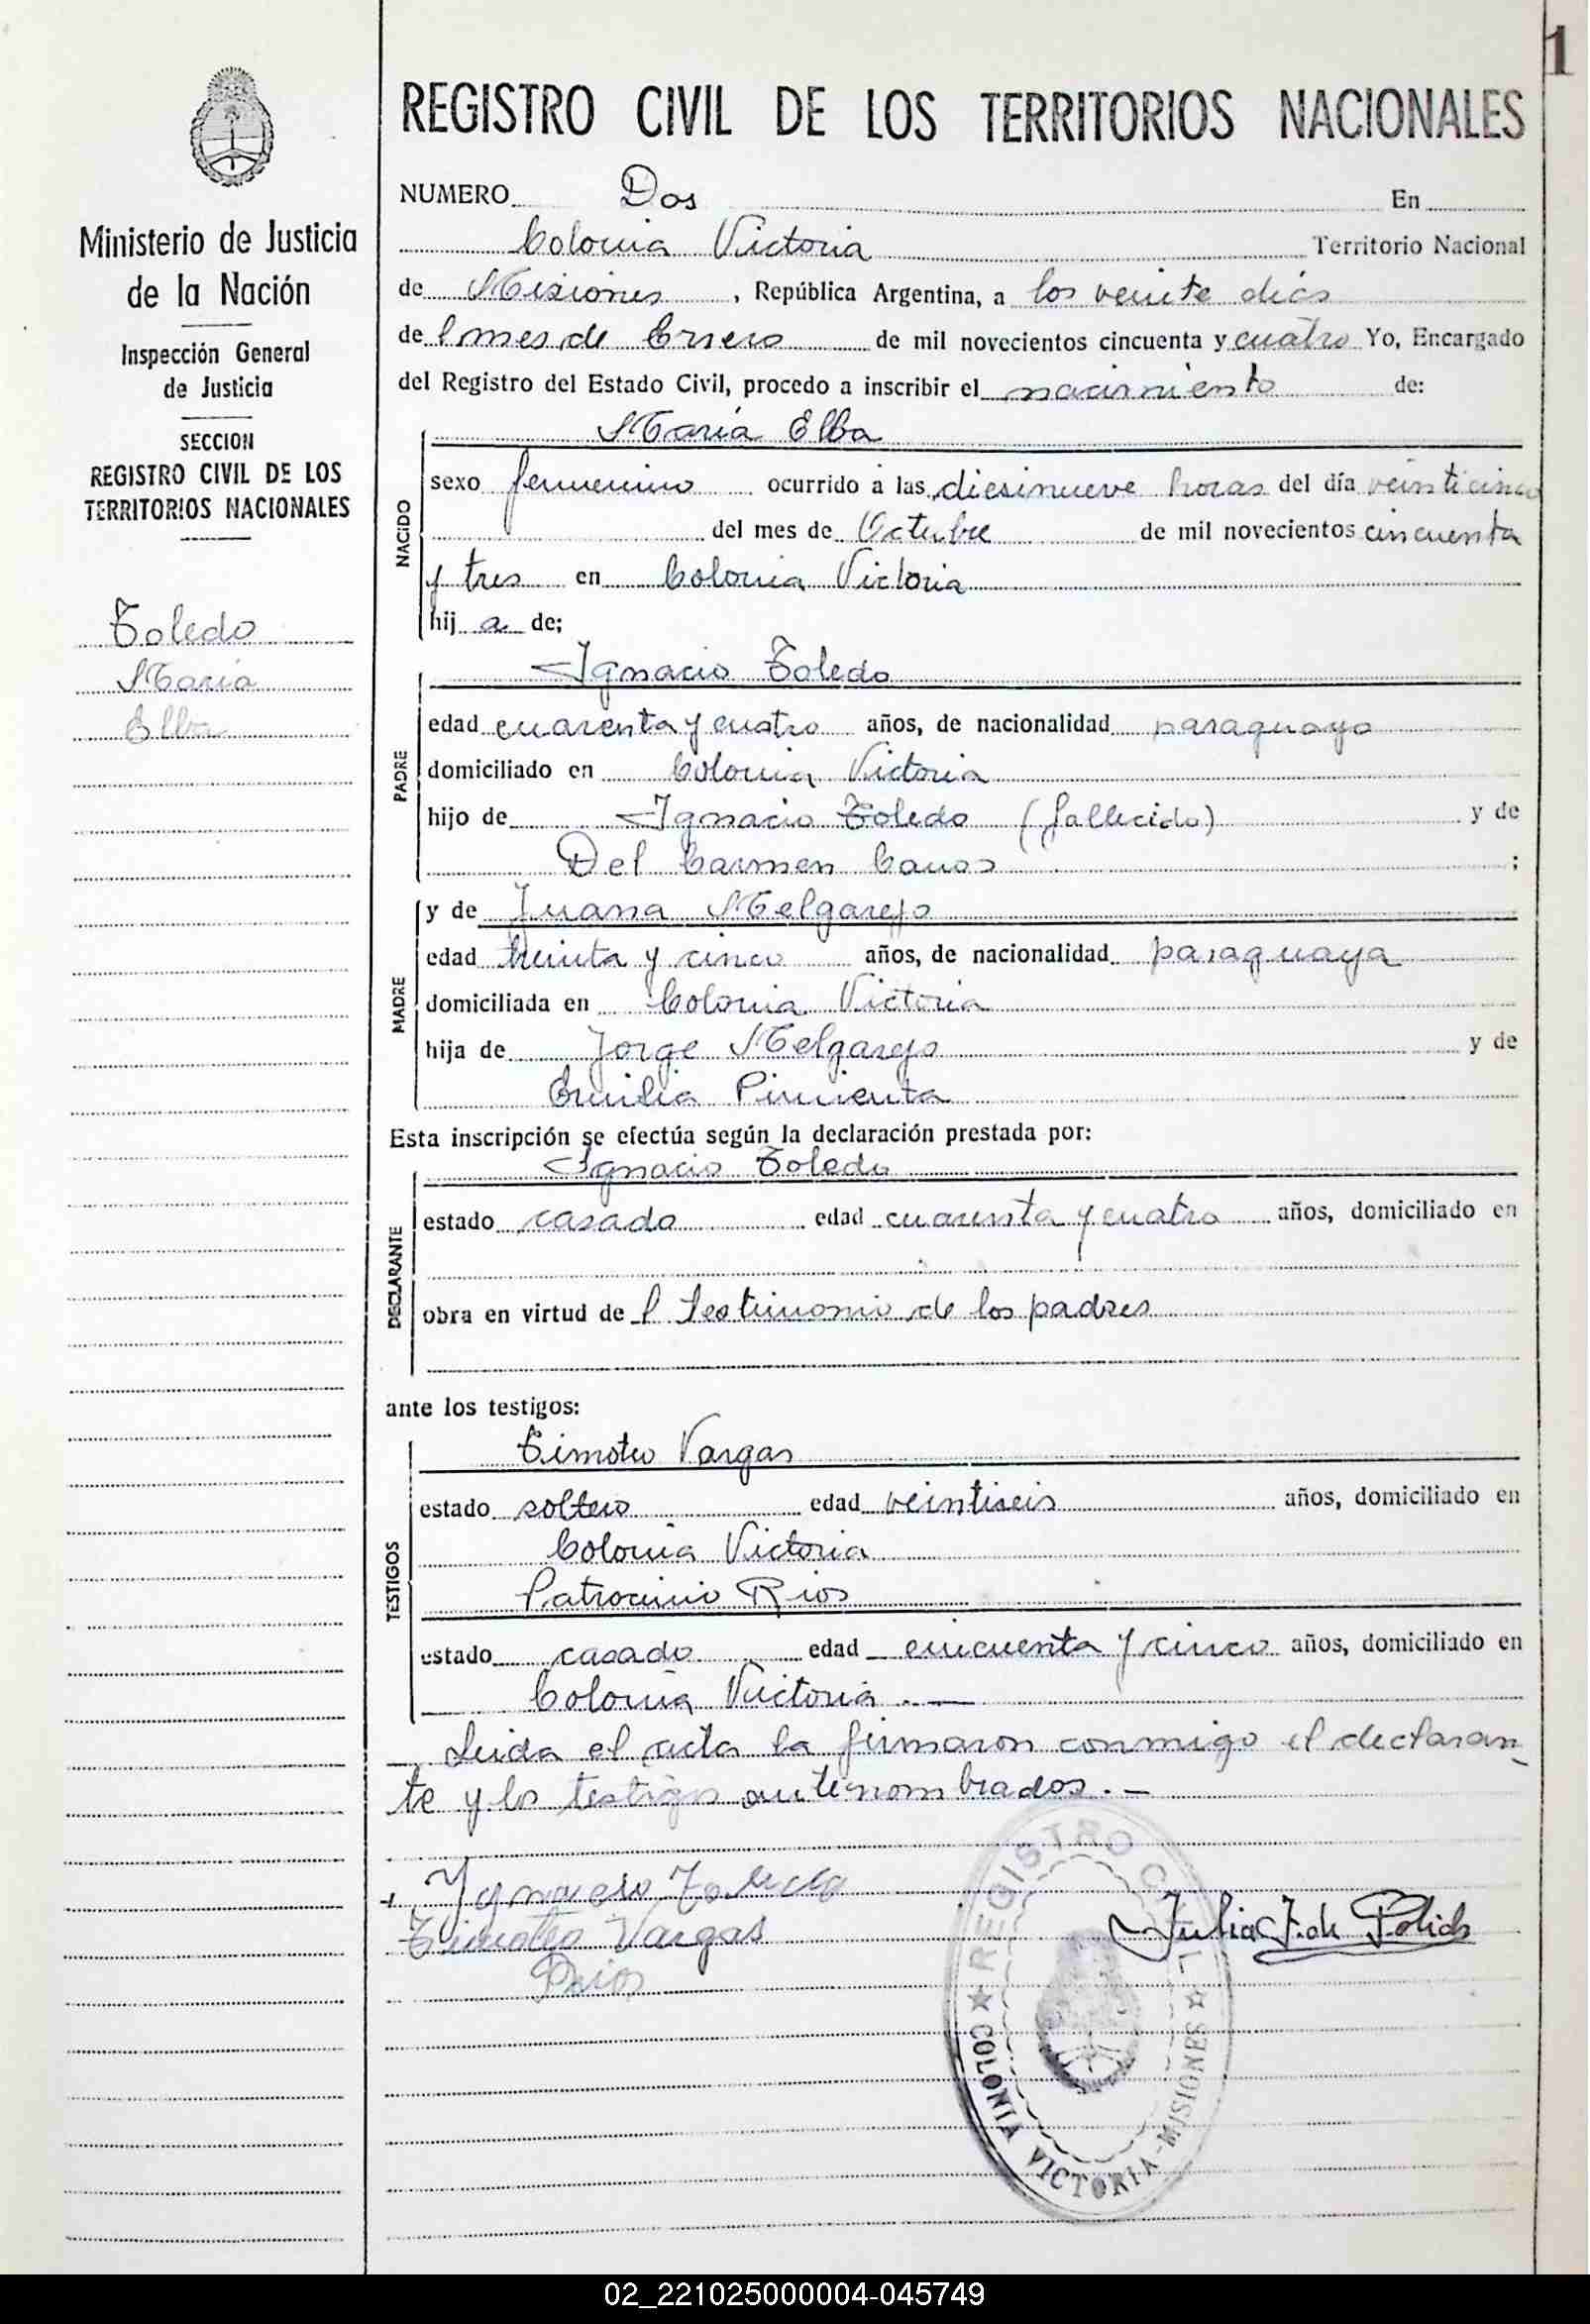 1
REGISTRO CIVIL DE LOS TERRITORIOS NACIONALES
Ministerio de Justicia
de la Nación
Inspección General
de Justicia
SECCION
REGISTRO CIVIL DE LOS
TERRITORIOS NACIONALES
Toledo
María
Elba
NUMERO Dos En
Colonia Victoria Territorio Nacional
de Misiones, República Argentina, a los veinte días
del mes de Enero de mil novecientos cincuenta y cuatro Yo, Encargado
del Registro del Estado Civil, procedo a inscribir el nacimiento de:
NACIDO
María Elba
sexo femenino ocurrido a las diesinueve horas del día veinticinco
del mes de Octubre de mil novecientos cincuenta
y tres en Colonia Victoria
hij a de;
PADRE
Ignacio Toledo
edad cuarenta y cuatro años, de nacionalidad paraguayo
domiciliado en Colonia Victoria
hijo de Ignacio Toledo (fallecido) y de
Del Carmen ;
MADRE
y de Juana Melgarejo
edad treinta y cinco años, de nacionalidad paraguaya
domiciliada en Colonia Victoria
hija de Jorge Melgarejo y de
Emilia Pimienta
Esta inscripción se efectúa según la declaración prestada por:
DECLARANTE
Ignacio Toledo
estado casado edad cuarenta y cuatro años, domiciliado en
obra en virtud de l testimonio de los padres
ante los testigos:
TESTIGOS
Timoteo Vargas
estado soltero edad veintiseis años, domiciliado en
Colonia Victoria
Patrocinio Rios
estado casado edad cincuenta y cinco años, domiciliado en
Colonia Victoria .—
Leida el acta la firmaron conmigo el declaran-
te y los testigos antenombrados.—
Ygnacio Toledo
Timoteo Vargas
Rios
Julia J. de
REGISTRO CIVIL
COLONIA VICTORIA - MISIONES
02_221025000004-045749